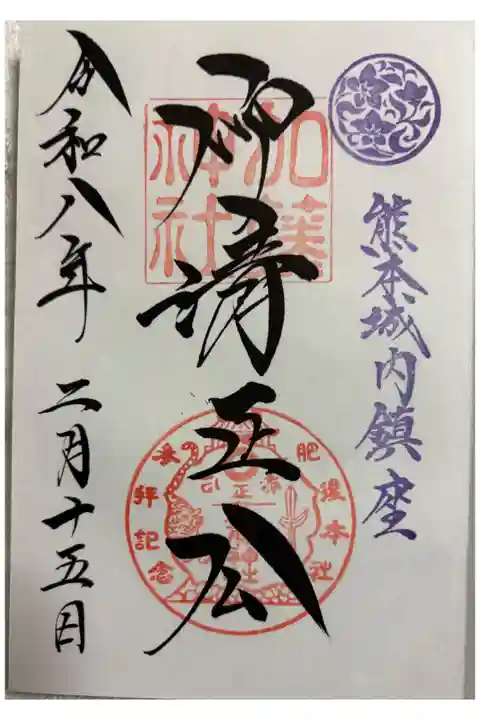 熊本城内鎮座
加藤神社
神 清正公
肥後本社
参拝記念
令和八年 二月十五日